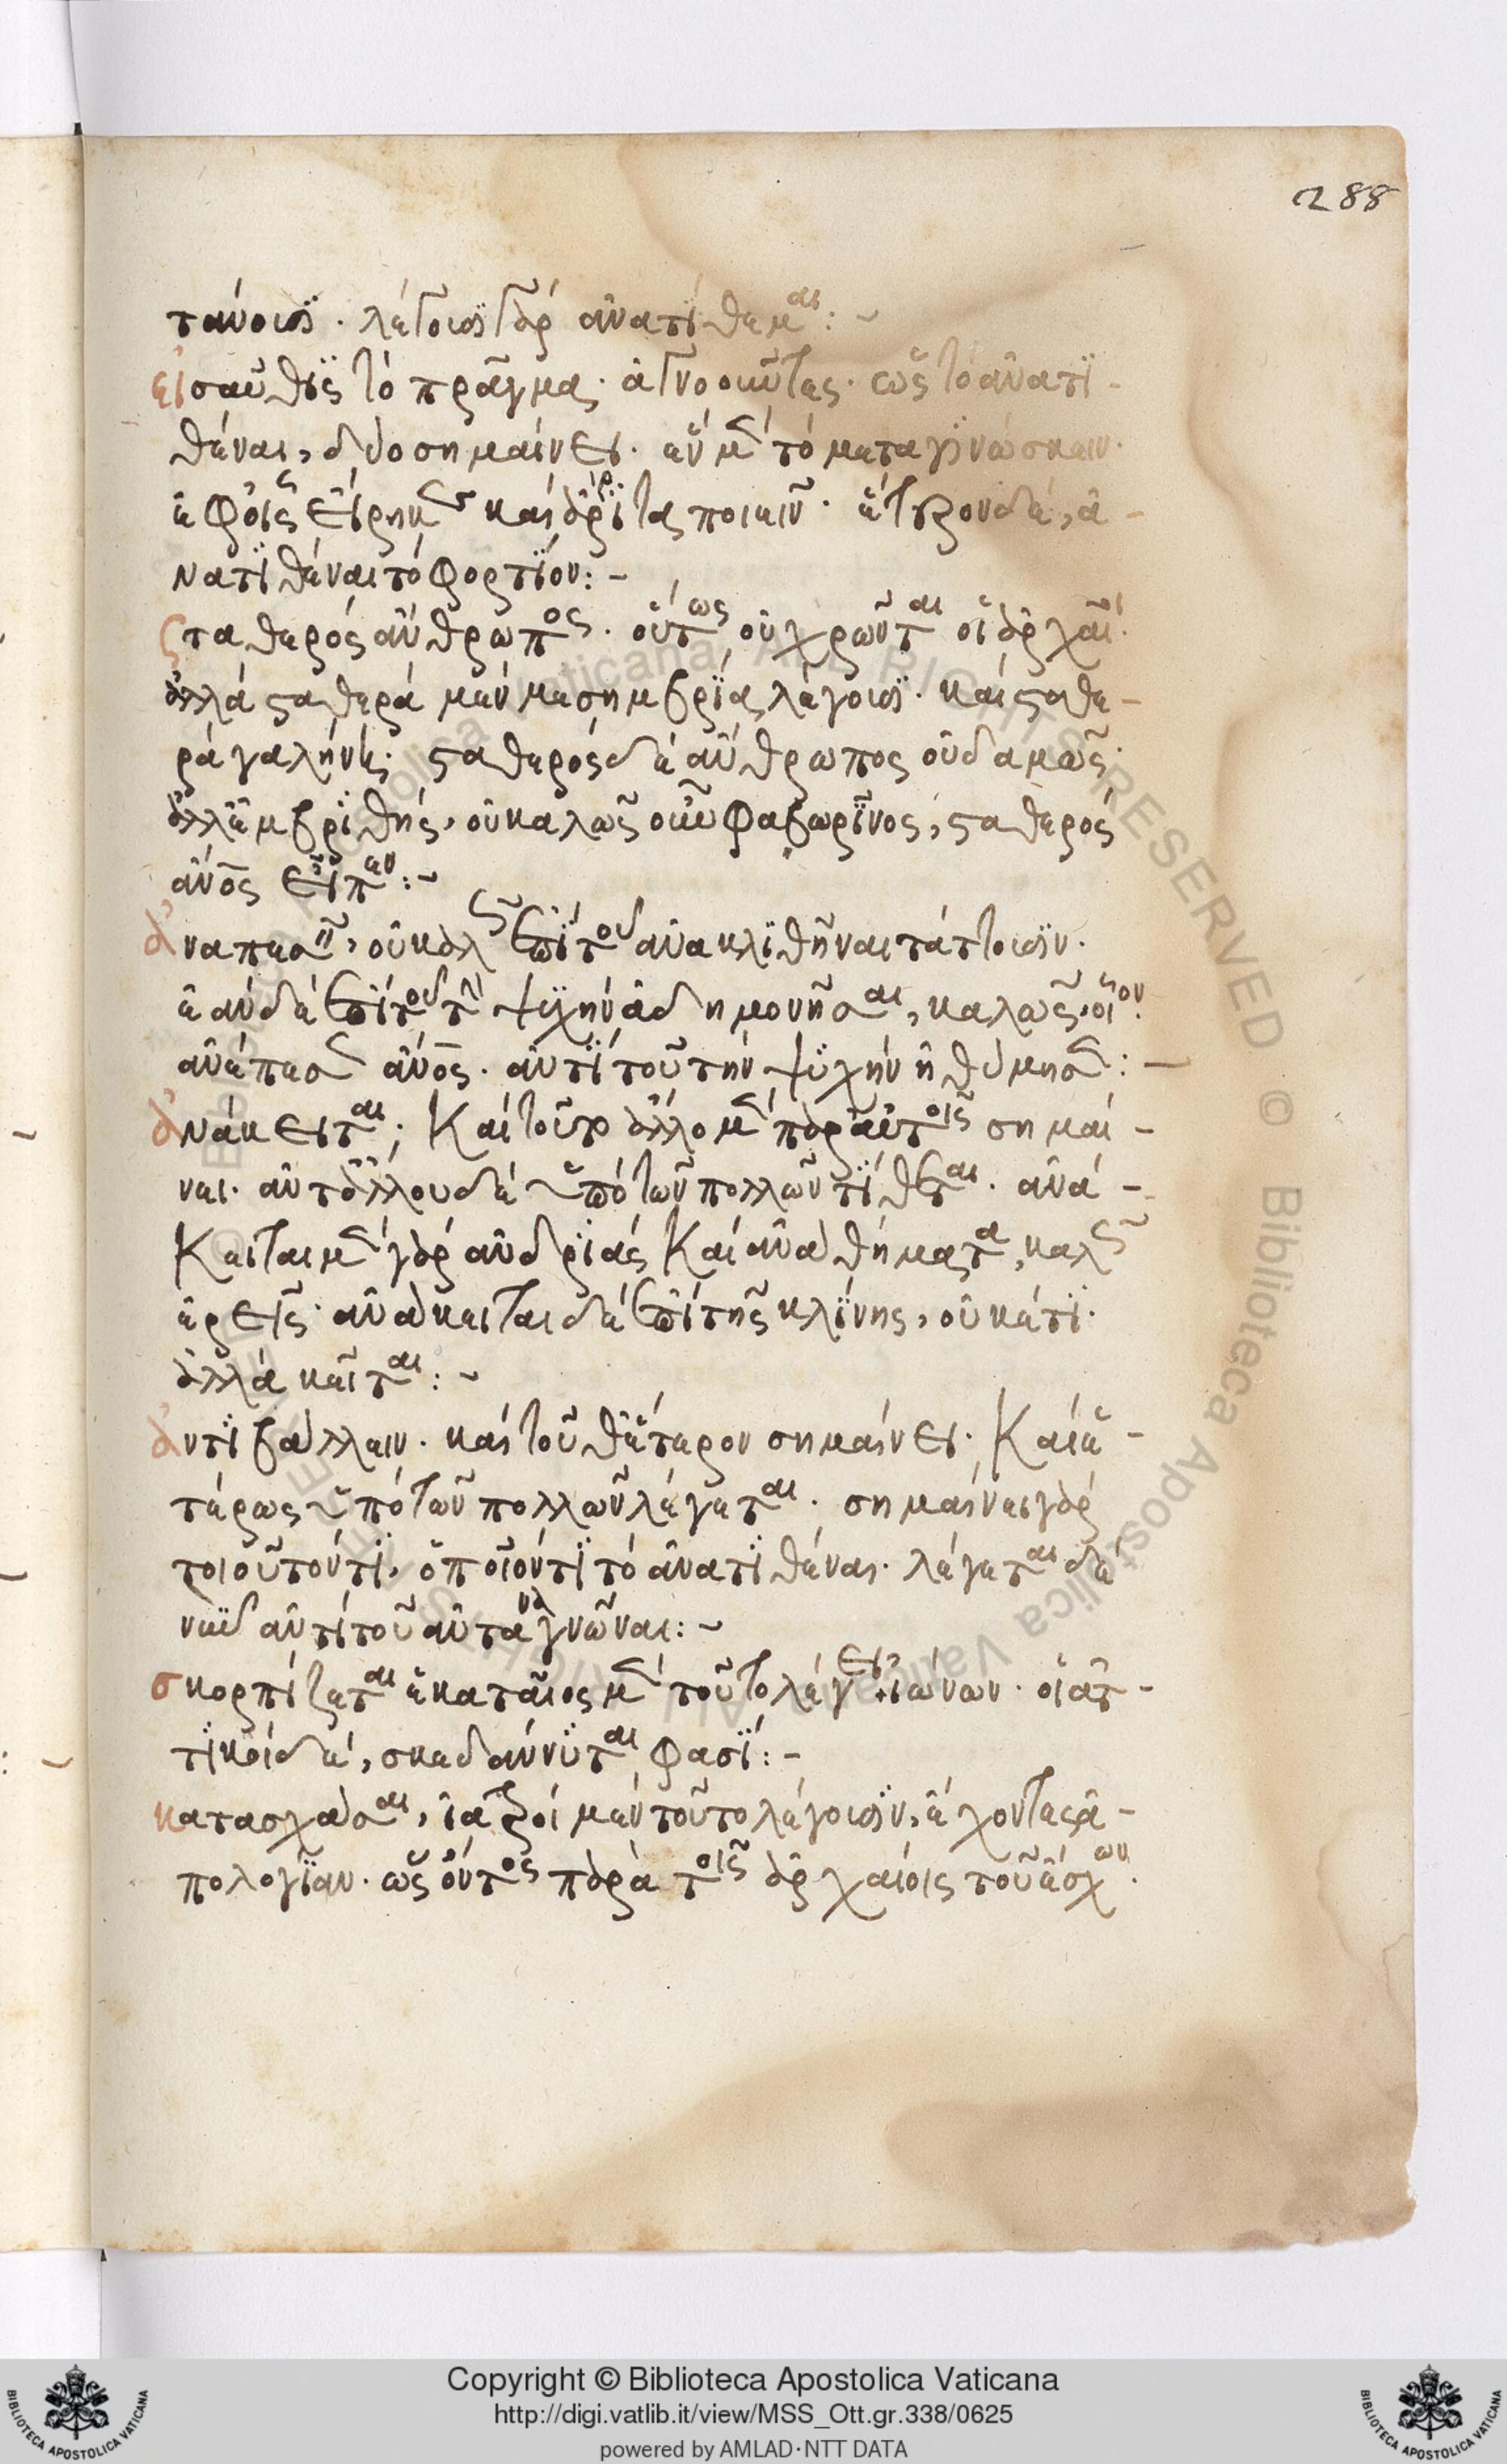 288
τάνοισϊ. λέγοισϊ γὰρ ἀνατΐθεμαι: ~
εἰσαῦθϊς τὸ πρᾶγμα. ἀγνοοῦντες. ὡς τὸ ἀνατϊ -
θέναι, δύο σημαίνει. ἐν μὲν τὸ μεταγϊνώσκειν.
ἐφ οἷς εἴρηκας καὶ ἄρϊτα ποιεῖν. ἕτερον δὲ, ἀ -
νατϊθέναι τὸ φορτΐον: -
σταθερός ἄνθρωπος. οὕτως οὐ χρῶνται οἱ ἀρχαῖοι.
ἀλλὰ σταθερὰ μὲν μεσημβρΐα λέγοισϊ. καὶ σταθε -
ρὰ γαλήνη. σταθερὸς δὲ ἄνθρωπος οὐδαμῶς.
ἀλλ ἐμβρϊθής, οὐ καλῶς οὖν φαβωρῖνος, σταθερός
ἄνος εἶπεν: ~
ἀναπεσεῖν, οὐ καλῶς ἐπὶ τοῦ ἀνακλϊθῆναι τάττοισϊν.
ἐὰν δὲ ἐπὶ τοῦ τὴν ψϋχὴν ἀδημονῆσαι, καλῶς. οἷον.
ἀνέπεσεν ἄνος. ἀντῒ τοῦ τὴν ψϋχὴν ἠθύμησεν: -
ἀνάκειται. καὶ τοῦτο ἄλλο μὲν παρ αὐτοῖς σημαί -
νει. ἀντ ἄλλου δὲ ὑπὸ τῶν πολλῶν τΐθεται. ἀνά -
κειται μὲν γὰρ ἀνδρϊὰς καὶ ἀναθήματα, καλῶς
ἐρεῖς. ἀνάκειται δὲ ἐπὶ τῆς κλΐνης, οὐκ έτϊ.
ἀλλὰ κεῖται: ~
ἀντϊβάλλειν. καὶ τοῦθ ἕτερον σημαίνει. καὶ ἑ -
τέρως ὑπὸ τῶν πολλῶν λέγεται. σημαίνει γὰρ
τοιοῦτόν τϊ, ὁποῖόν τϊ τὸ ἀνατϊθέναι. λέγεται δὲ
νῦν ἀντὶ τοῦ ἀνταναγνῶναι: ~
σκορπίζεται ἑκαταῖος μὲν τοῦτο λέγει, ἰώνων. οἱ ἀτ -
τϊκοὶ δὲ, σκεδάννϋται φασΐ: -
κατασχάσαι, ἰατροὶ μὲν τοῦτο λέγοισϊν, ἔχοντες ἀ -
πολογΐαν. ὡς ὄντος παρὰ τοῖς ἀρχαίοις τοῦ ἔσχων.
Copyright © Biblioteca Apostolica Vaticana
http://digi.vatlib.it/view/MSS_Ott.gr.338/0625
powered by AMLAD·NTT DATA